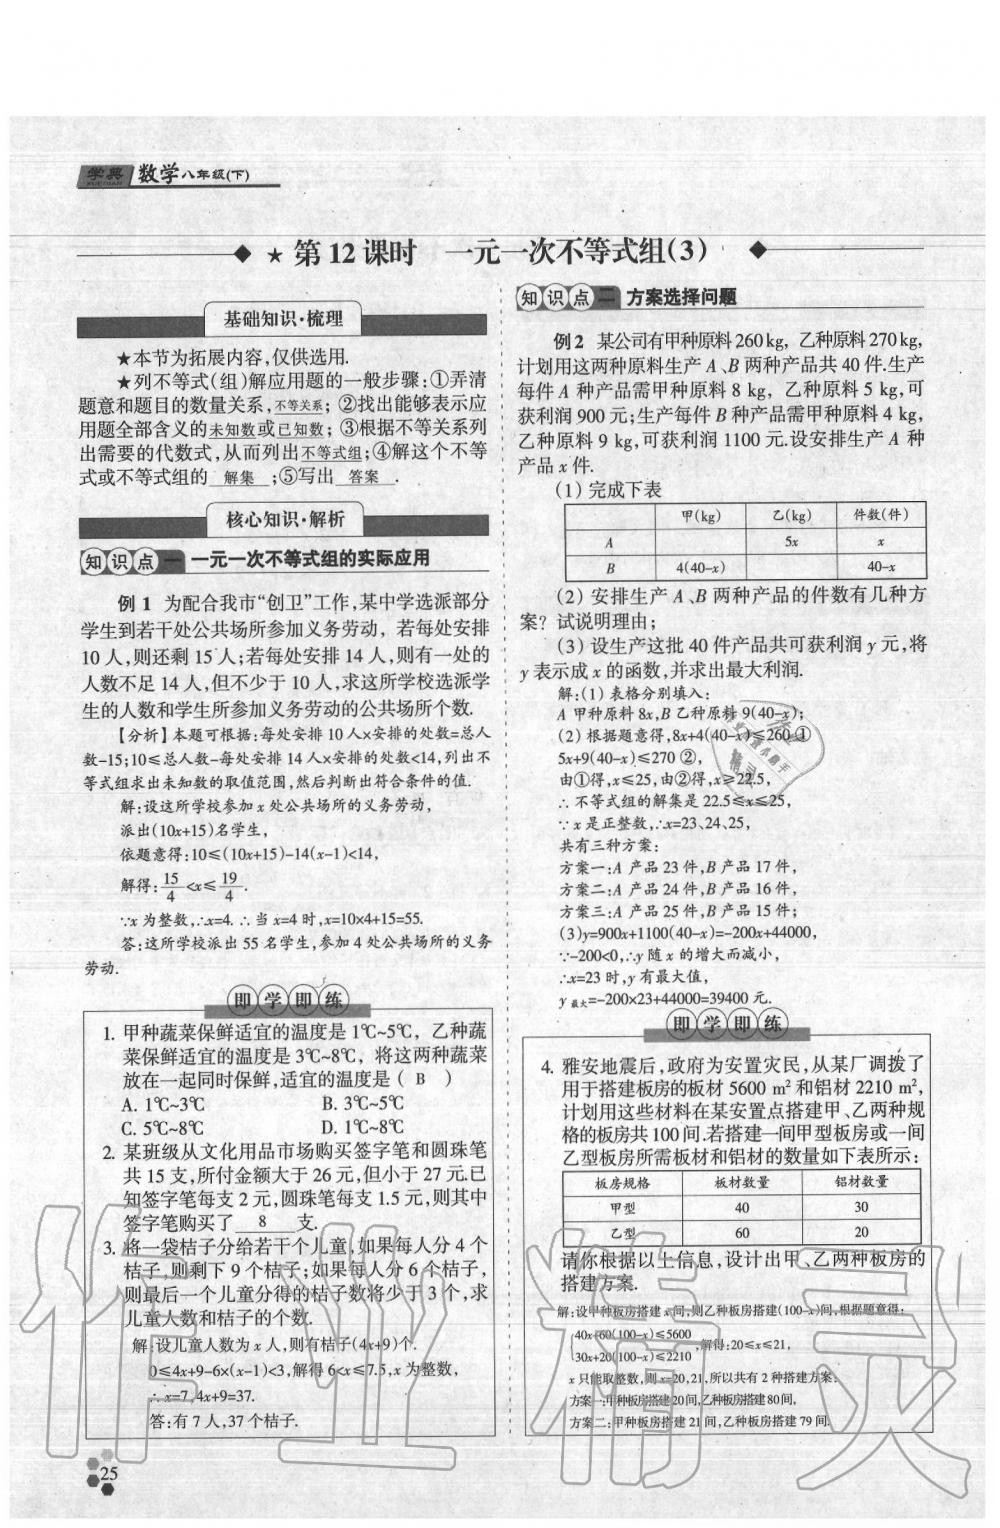 学典 数学八年级(下)
XUEDIAN
★ 第12课时 一元一次不等式组(3)
基础知识·梳理
★本节为拓展内容,仅供选用.
★列不等式(组)解应用题的一般步骤:①弄清
题意和题目的数量关系,不等关系;②找出能够表示应
用题全部含义的未知数或已知数;③根据不等关系列
出需要的代数式,从而列出不等式组;④解这个不等
式或不等式组的 解集 ;⑤写出 答案 .
核心知识·解析
知识点一 一元一次不等式组的实际应用
例1 为配合我市“创卫”工作,某中学选派部分
学生到若干处公共场所参加义务劳动,若每处安排
10人,则还剩15人;若每处安排14人,则有一处的
人数不足14人,但不少于10人,求这所学校选派学
生的人数和学生所参加义务劳动的公共场所个数.
【分析】本题可根据:每处安排10人×安排的处数=总人
数-15;10≤总人数-每处安排14人×安排的处数<14,列出不
等式组求出未知数的取值范围,然后判断出符合条件的值.
解:设这所学校参加x处公共场所的义务劳动,
派出(10x+15)名学生,
依题意得:10≤(10x+15)-14(x-1)<14,
解得:15/4<x≤19/4.
∵x为整数,∴x=4.∴当x=4时,x=10×4+15=55.
答:这所学校派出55名学生,参加4处公共场所的义务
劳动.
即学即练
1. 甲种蔬菜保鲜适宜的温度是1℃~5℃,乙种蔬
菜保鲜适宜的温度是3℃~8℃,将这两种蔬菜
放在一起同时保鲜,适宜的温度是( B )
A. 1℃~3℃ B. 3℃~5℃
C. 5℃~8℃ D. 1℃~8℃
2. 某班级从文化用品市场购买签字笔和圆珠笔
共15支,所付金额大于26元,但小于27元.已
知签字笔每支2元,圆珠笔每支1.5元,则其中
签字笔购买了 8 支.
3. 将一袋桔子分给若干个儿童,如果每人分4个
桔子,则剩下9个桔子;如果每人分6个桔子,
则最后一个儿童分得的桔子数将少于3个,求
儿童人数和桔子的个数.
解:设儿童人数为x人,则有桔子(4x+9)个.
0≤4x+9-6×(x-1)<3,解得6<x≤7.5,x为整数,
∴x=7,4x+9=37.
答:有7人,37个桔子.
25
知识点二 方案选择问题
例2 某公司有甲种原料260kg,乙种原料270kg,
计划用这两种原料生产A、B两种产品共40件.生产
每件A种产品需甲种原料8 kg,乙种原料5 kg,可
获利润900元;生产每件B种产品需甲种原料4 kg,
乙种原料9 kg,可获利润1100元.设安排生产A种
产品x件.
(1)完成下表
甲(kg) 乙(kg) 件数(件)
A 5x x
B 4(40-x) 40-x
(2)安排生产A、B两种产品的件数有几种方
案?试说明理由;
(3)设生产这批40件产品共可获利润y元,将
y表示成x的函数,并求出最大利润.
解:(1)表格分别填入:
A甲种原料8x,B乙种原料9(40-x);
(2)根据题意得,8x+4(40-x)≤260①
5x+9(40-x)≤270②,
由①得,x≤25,由②得,x≥22.5,
∴不等式组的解集是22.5≤x≤25,
∵x是正整数,∴x=23、24、25,
共有三种方案:
方案一:A产品23件,B产品17件,
方案二:A产品24件,B产品16件,
方案三:A产品25件,B产品15件;
(3)y=900x+1100(40-x)=-200x+44000,
∵-200<0,∴y随x的增大而减小,
∴x=23时,y有最大值,
y最大=-200×23+44000=39400元.
即学即练
4. 雅安地震后,政府为安置灾民,从某厂调拨了
用于搭建板房的板材5600 m²和铝材2210 m²,
计划用这些材料在某安置点搭建甲、乙两种规
格的板房共100间.若搭建一间甲型板房或一间
乙型板房所需板材和铝材的数量如下表所示:
板房规格 板材数量 铝材数量
甲型 40 30
乙型 60 20
请你根据以上信息,设计出甲、乙两种板房的
搭建方案.
解:设甲种板房搭建x间,则乙种板房搭建(100-x)间,根据题意得:
40x+60(100-x)≤5600
30x+20(100-x)≤2210 ,解得:20≤x≤21,
x只能取整数,则x=20,21,所以共有2种搭建方案:
方案一:甲种板房搭建20间,乙种板房搭建80间,
方案二:甲种板房搭建21间,乙种板房搭建79间.
作业精灵